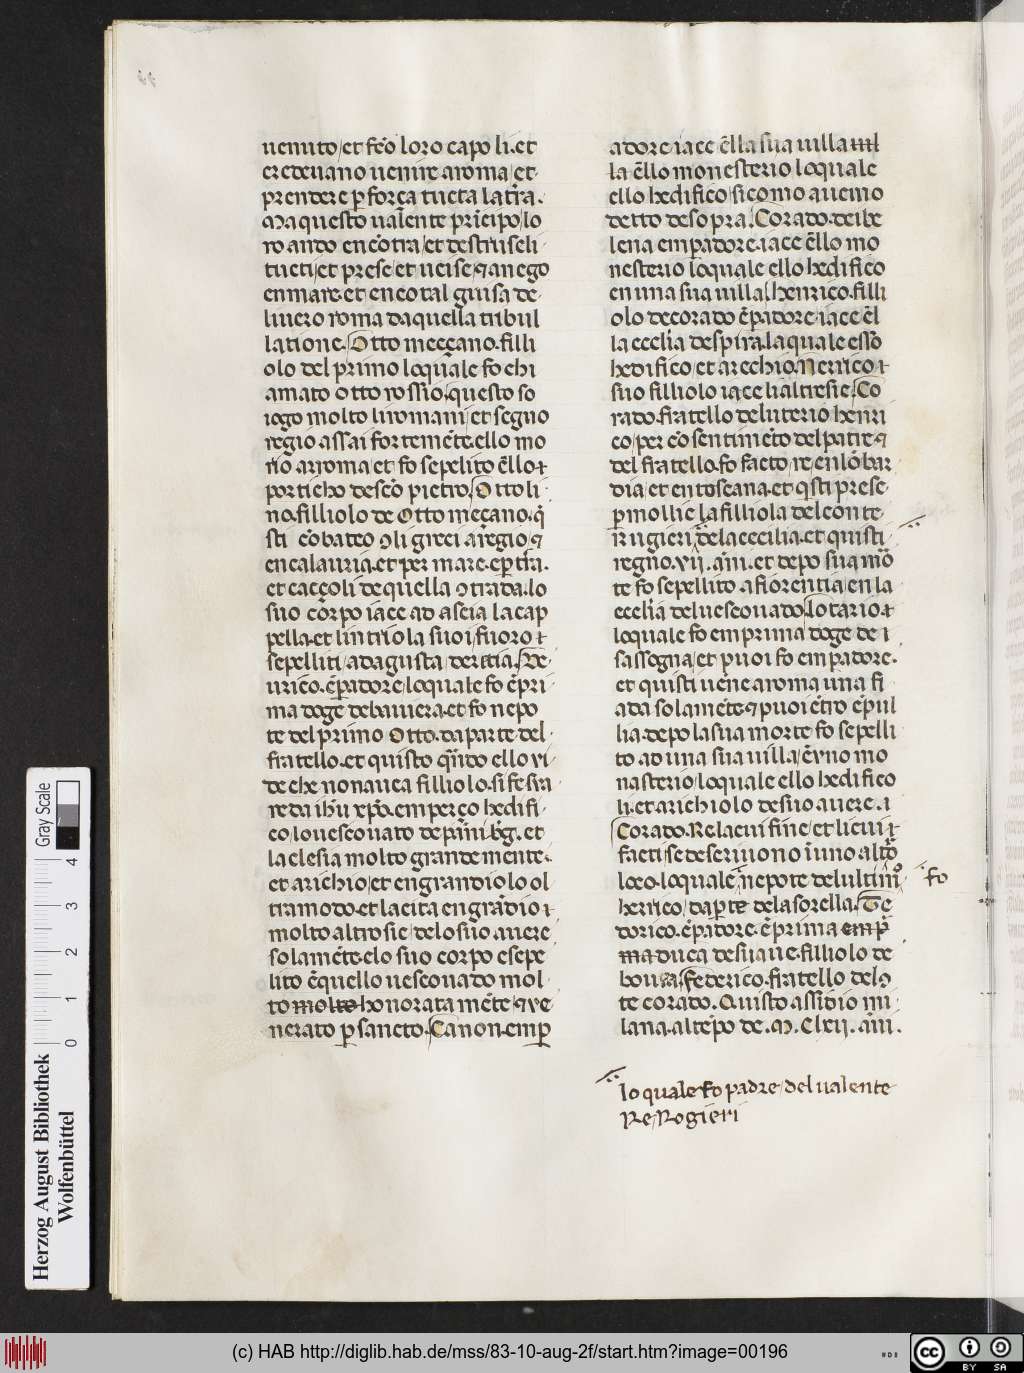 uenuto et feo loro capo li. et
credeuano uenire aroma et
prendere p força tucta latira.
Ma questo ualente principo lo
ro ando encotra et destruseli
tucti et prese et ucise et anego
enmare et encotal guisa de
liuero roma daquella tribul
latione. Otto meççano filli
olo del primo loquale fo chi
amato otto rossio questo so
iogo molto li romani et segno
regio assai fortemete ello mo
rio arroma et fo sepelito ello
porticho desco pietro. Otto li
no filliolo de Otto meçano. q
sti cobateo coli greci aregio et
encalauria et per mare. e p tira.
et caççoli de quella contrada. lo
suo corpo iace ad ascia la cap
pella et lintriola suoi fuoro
sepelliti adagusta deretia. He
urico epadore loquale fo epri
ma doge de bauiera et fo nepo
te del primo Otto. da parte del
fratello et quisto quido ello ui
de che non auea filliolo si fe sra
re da ihu xpo emperço hedifi
co louescouato de
la clesia molto grande mente.
et arichio et engrandiolo ol
tramodo et la cita engradio
molto altrosie delo suo auere
solamete elo suo corpo e sepe
lito equello uescouado mol
to molto honorata mete et ue
nerato p sancto. Canon emp
adore iace ella sua uilla
la ello monesterio loquale
ello hedifico si como auemo
detto desopra. Corado de ibe
lena empadore. iace ello mo
nesterio loquale ello hedifico
en una sua uilla henrico filli
olo de corado epadore iace el
la ecclia de spira la quale esso
hedifico et arechio. Henrico
suo filliolo iace li altresie. Co
rado fratello de luterio henri
co per cosentimeto del patre et
del fratello fo facto re en lobar
dia et en toscana et qsti prese
p mollie la filliola del conte
rugieri dela cecilia et quisti
regno. vii. ani. et depo sua mo
te fo sepellito a fiorentia en la
ecclia del uescouado lotario
loquale fo emprima doge de
sassogna et puoi fo empadore.
et quisti uene aroma una fi
ada solamete et puoi etro epul
lia. depo la sua morte fo sepelli
to ad una sua uilla euno mo
nasterio loquale ello hedifico
li. et arichiolo de suo auere.
Corado. Re lacui fine et licui
facti se descriuono iuno alto
loco. loquale nepote del ultimo
fo
henrico dapte dela sorella. Te
dorico epadore. eprima emp
ma duca desuaue filliolo de
bona. Federico fratello delo
te corado. Quisto assidio mi
lana. altepo de. M. Clxii. ani.
lo quale fo padre del ualente
Re Rogieri
Gray Scale
4
3
2
1
0
Herzog August Bibliothek
Wolfenbüttel
(c) HAB http://diglib.hab.de/mss/83-10-aug-2f/start.htm?image=00196
cc BY SA